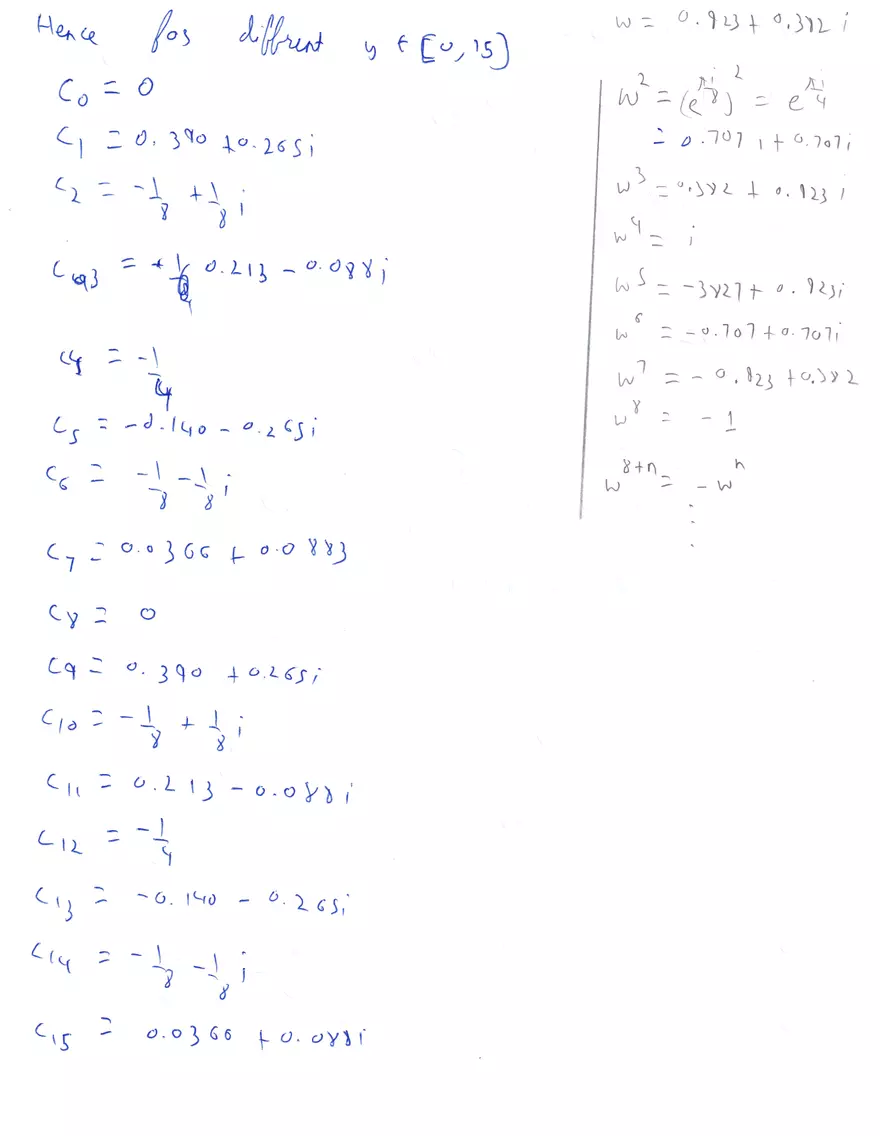 Hence for diffrent y ∈ [0, 15]
C0 = 0
C1 = 0.390 + 0.265i
C2 = -1/8 + 1/8 i
C3 = 0.213 - 0.088i
C4 = -1/4
C5 = -0.140 - 0.265i
C6 = -1/8 - 1/8 i
C7 = 0.0366 + 0.0883
C8 = 0
C9 = 0.390 + 0.265i
C10 = -1/8 + 1/8 i
C11 = 0.213 - 0.088i
C12 = -1/4
C13 = -0.140 - 0.265i
C14 = -1/8 - 1/8 i
C15 = 0.0366 + 0.088i
w = 0.923 + 0.382 i
w^2 = (e^(πi/8))^2 = e^(πi/4)
= 0.707 1 + 0.707i
w^3 = 0.382 + 0.923 i
w^4 = i
w^5 = -3827 + 0.923i
w^6 = -0.707 + 0.707i
w^7 = -0.923 + 0.382
w^8 = -1
w^(8+n) = -w^n
⋮